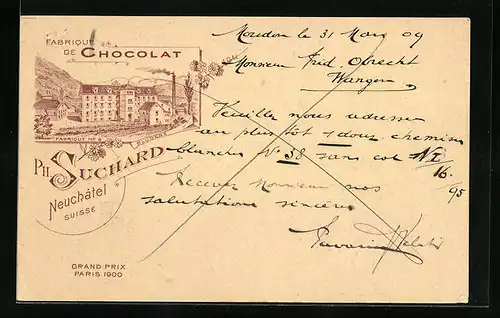 FABRIQUE
DE CHOCOLAT
FABRIQUE Nº
PH. SUCHARD
Neuchâtel
SUISSE
GRAND PRIX
PARIS 1900
Moudon le 31 Mars 09
Monsieur Frid. Obrecht
Wangen
Veuillez nous adresser
au plus tôt 1 douz. chemises
blanches Nº 38 sans col
16
95
Recevez Monsieur nos
salutations sincères